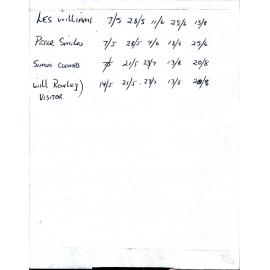 Les Williams 7/5 28/5 11/6 25/6 13/8
Peter 7/5 28/5 4/6 18/6 25/6
Simon 21/5 23/7 13/8 20/8
Will Rowley) 14/5 21/5 23/7 13/8
Visitor